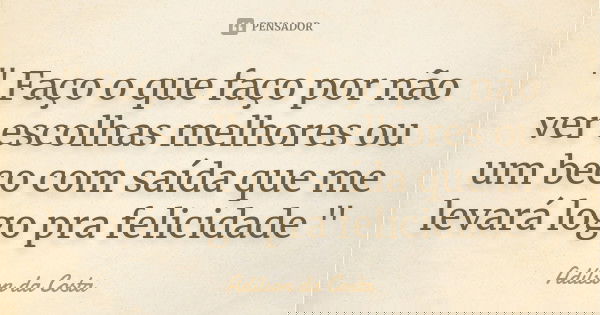 PENSADOR
" Faço o que faço por não
ver escolhas melhores ou
um beco com saída que me
levará logo pra felicidade "
Adilson da Costa